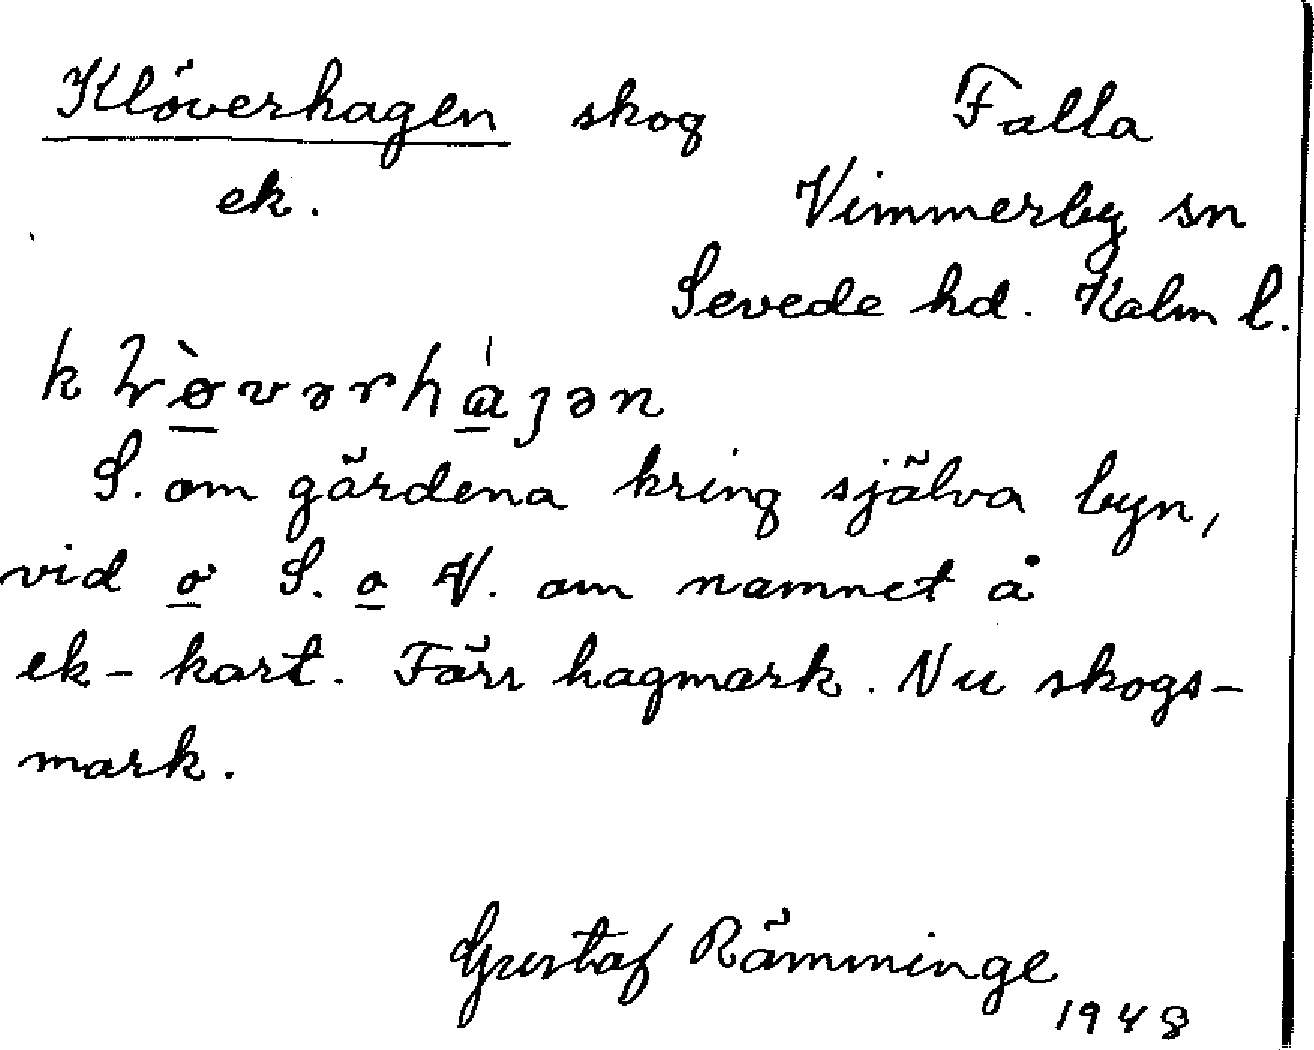 Klöverhagen skog Falla
ek. Vimmerby sn
Sevede hd. Kalm l.
S. om gärdena kring själva byn,
vid o S. o V. om namnet å
ek-kart. Förr hagmark. Nu skogs-
mark.
Gustaf Rämminge
1948